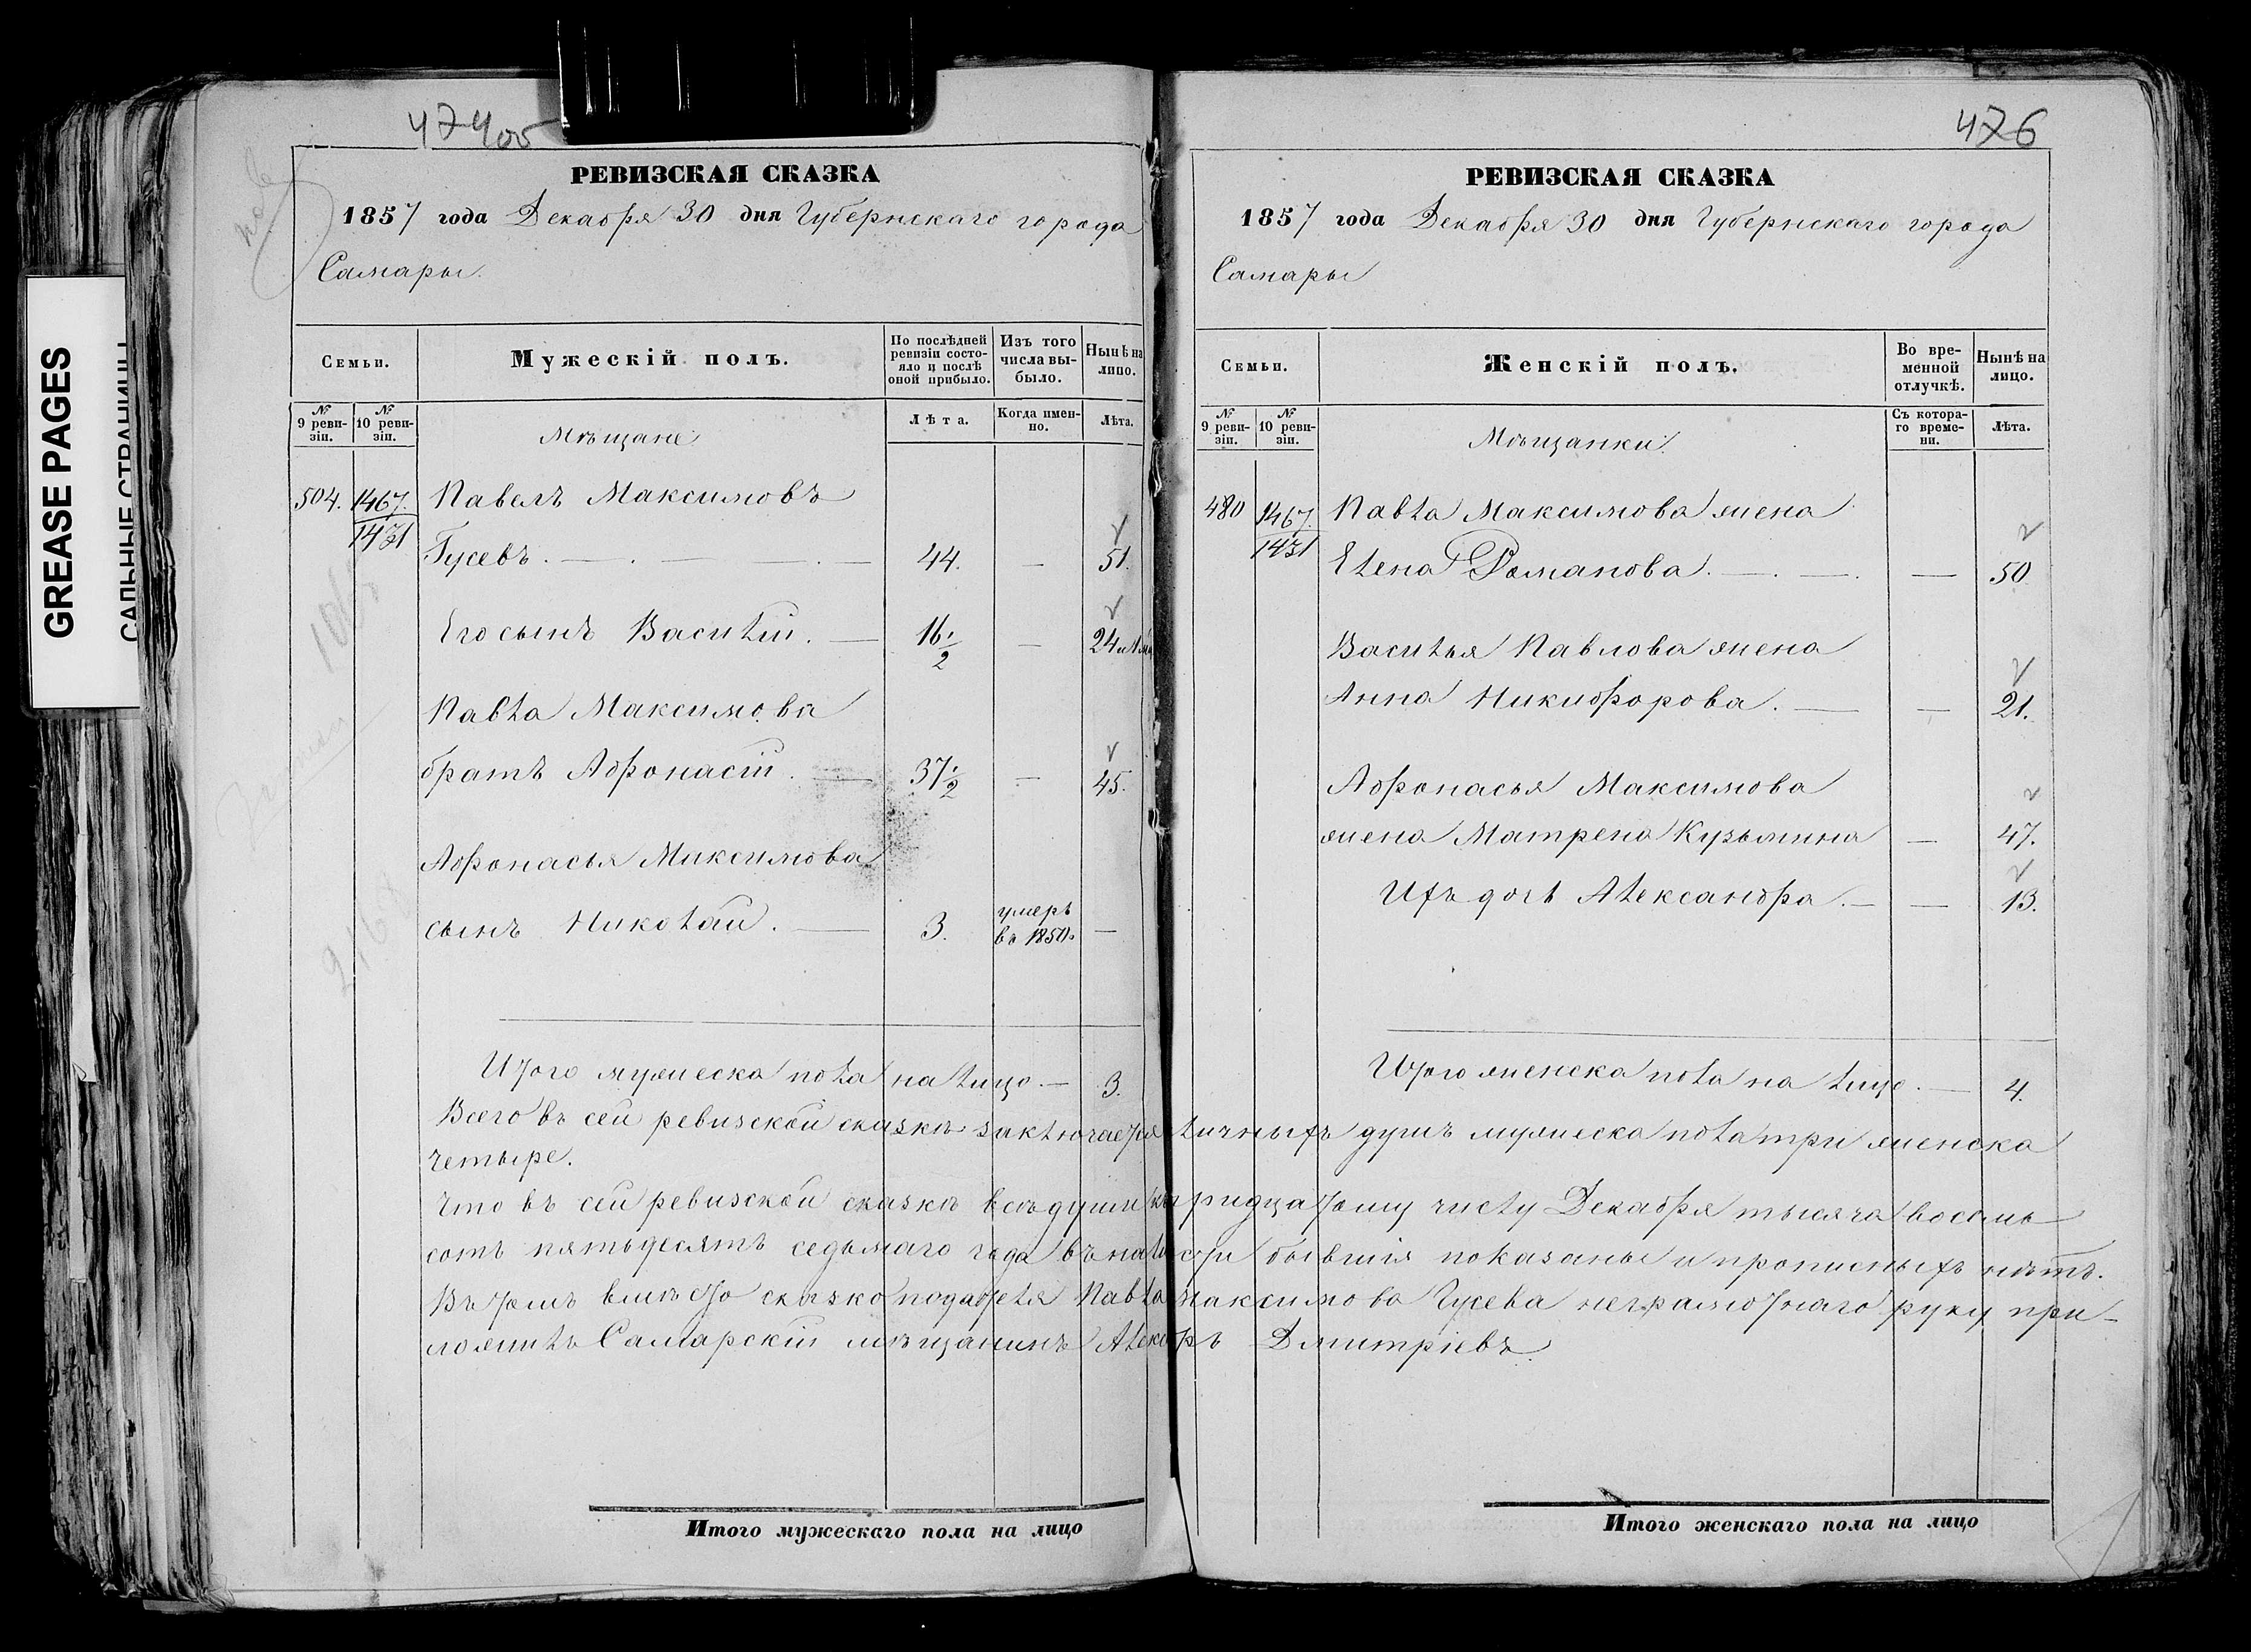 474 об
РЕВИЗСКАЯ СКАЗКА
1857 года Декабря 30 дня Губернскаго города
Самары.
Семьи.
Мужескій полъ.
По послѣдней ревизіи состо-
яло и послѣ
оной прибыло.
Изъ того
числа вы-
было.
Нынѣ на
лицо.
№
9 реви-
зіи.
№
10 реви-
зіи.
Мѣщане
Лѣта.
Когда имен-
но.
Лѣта.
504. 1467. Павелъ Максимовъ
1431 Гусевъ. 44. — 51.
Его сынъ Василій. 16 1/2 — 24
Павла Максимова
братъ Афонасій. 37 1/2 — 45.
Афонасья Максимова
сынъ Николай. 3. умеръ
въ 1850. —
Итого мужеска пола на лицо — 3.
476
РЕВИЗСКАЯ СКАЗКА
1857 года Декабря 30 дня Губернскаго города
Самары
Семьи.
Женскій полъ.
Во вре-
менной
отлучкѣ.
Нынѣ на
лицо.
№
9 реви-
зіи.
№
10 реви-
зіи.
Мѣщанки.
Съ котора-
го време-
ни.
Лѣта.
480 1467. Павла Максимова жена
1431 Елена Романова. — 50.
Василья Павлова жена
Анна Никифорова. — 21.
Афонасья Максимова
жена Матрена Кузьмина — 47.
Ихъ дочь Александра. — 13.
Итого женска пола на лицо. — 4.
Всего въ сей ревизской сказкѣ заключается личныхъ душъ мужеска пола три женска
четыре.
Что въ сей ревизской сказкѣ всѣ души къ тридцатому числу Декабря тысяча восемь
сотъ пятьдесятъ седьмаго года въ налич бывшія показаны и прописныхъ нѣтъ.
Въ томъ вмѣсто сказко подателя Павла Максимова Гусева неграмотнаго руку при-
ложилъ Самарскій мѣщанинъ Дмитріевъ
Итого мужескаго пола на лицо
Итого женскаго пола на лицо
GREASE PAGES
САЛЬНЫЕ СТРАНИЦЫ